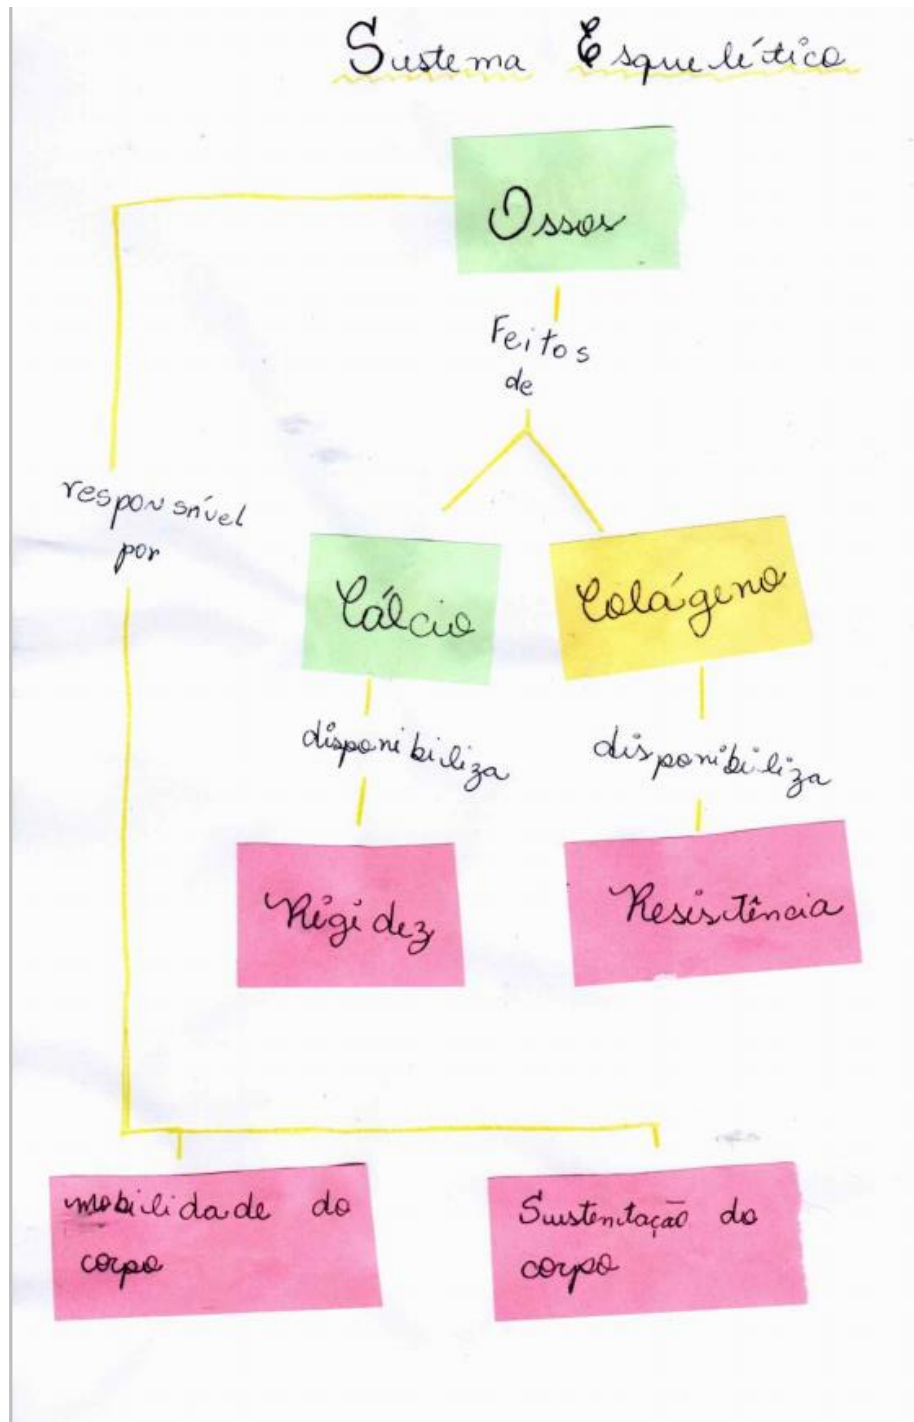 Sistema Esquelético
Ossos
Feitos
de
responsável
por
Cálcio
Colágeno
disponibiliza
disponibiliza
Rigidez
Resistência
mobilidade do
corpo
Sustentação do
corpo